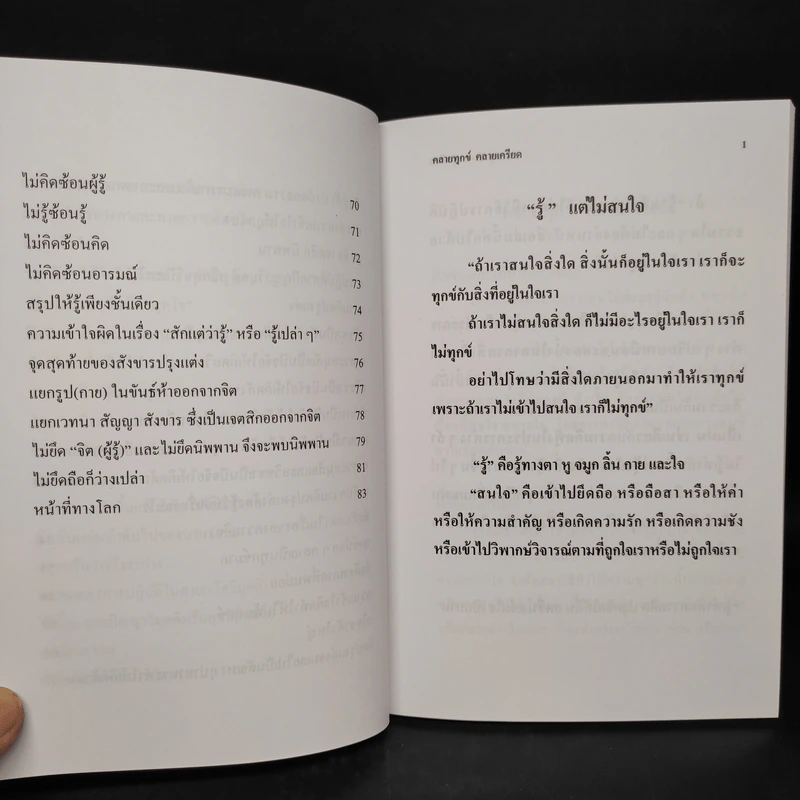 ไม่คิดซ้อนผู้รู้ 70
ไม่รู้ซ้อนรู้ 71
ไม่คิดซ้อนคิด 72
ไม่คิดซ้อนอารมณ์ 73
สรุปให้รู้เพียงชั้นเดียว 74
ความเข้าใจผิดในเรื่อง “สักแต่ว่ารู้” หรือ “รู้เปล่า ๆ” 75
จุดสุดท้ายของสังขารปรุงแต่ง 76
แยกรูป(กาย) ในขันธ์ห้าออกจากจิต 77
แยกเวทนา สัญญา สังขาร ซึ่งเป็นเจตสิกออกจากจิต 78
ไม่ยึด “จิต (ผู้รู้)” และไม่ยึดนิพพาน จึงจะพบนิพพาน 79
ไม่ยึดถือก็ว่างเปล่า 81
หน้าที่ทางโลก 83
คลายทุกข์ คลายเครียด 1
“รู้” แต่ไม่สนใจ
“ถ้าเราสนใจสิ่งใด สิ่งนั้นก็อยู่ในใจเรา เราก็จะ
ทุกข์กับสิ่งที่อยู่ในใจเรา
ถ้าเราไม่สนใจสิ่งใด ก็ไม่มีอะไรอยู่ในใจเรา เราก็
ไม่ทุกข์
อย่าไปโทษว่ามีสิ่งใดภายนอกมาทำให้เราทุกข์
เพราะถ้าเราไม่เข้าไปสนใจ เราก็ไม่ทุกข์”
“รู้” คือรู้ทางตา หู จมูก ลิ้น กาย และใจ
“สนใจ” คือเข้าไปยึดถือ หรือถือสา หรือให้ค่า
หรือให้ความสำคัญ หรือเกิดความรัก หรือเกิดความชัง
หรือเข้าไปวิพากษ์วิจารณ์ตามที่ถูกใจเราหรือไม่ถูกใจเรา